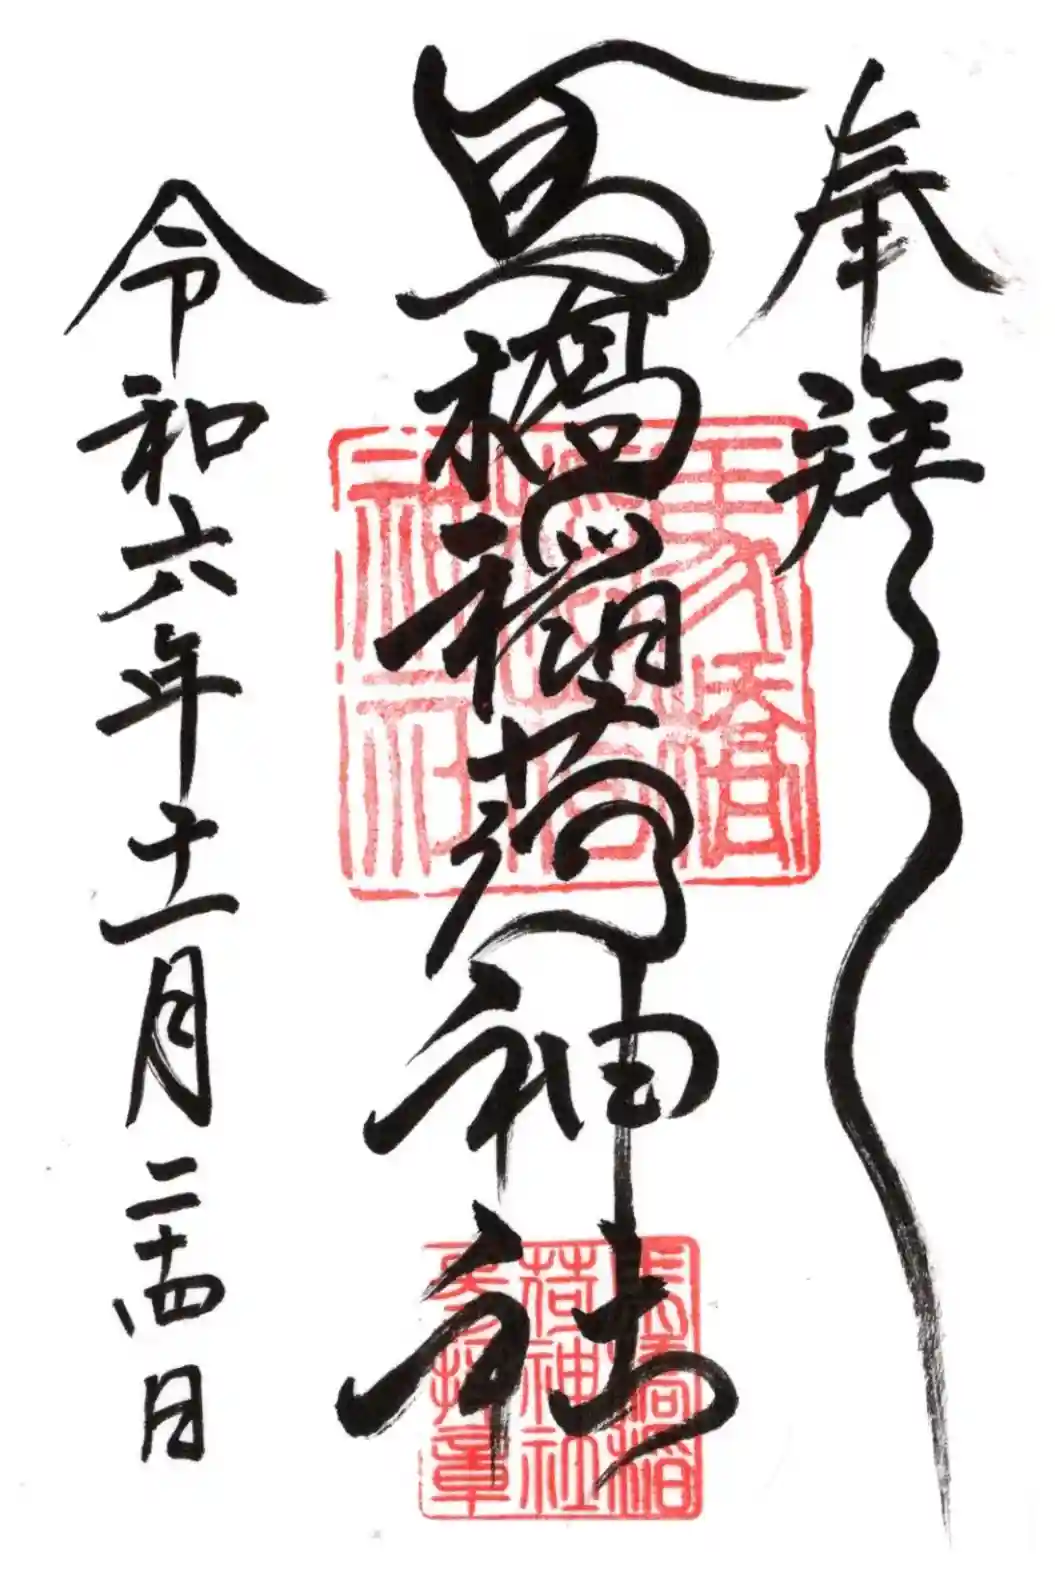 奉拝
馬橋稲荷神社
令和六年十一月二十四日
馬橋
稲荷
神社
馬橋稲
荷神社
参拝章